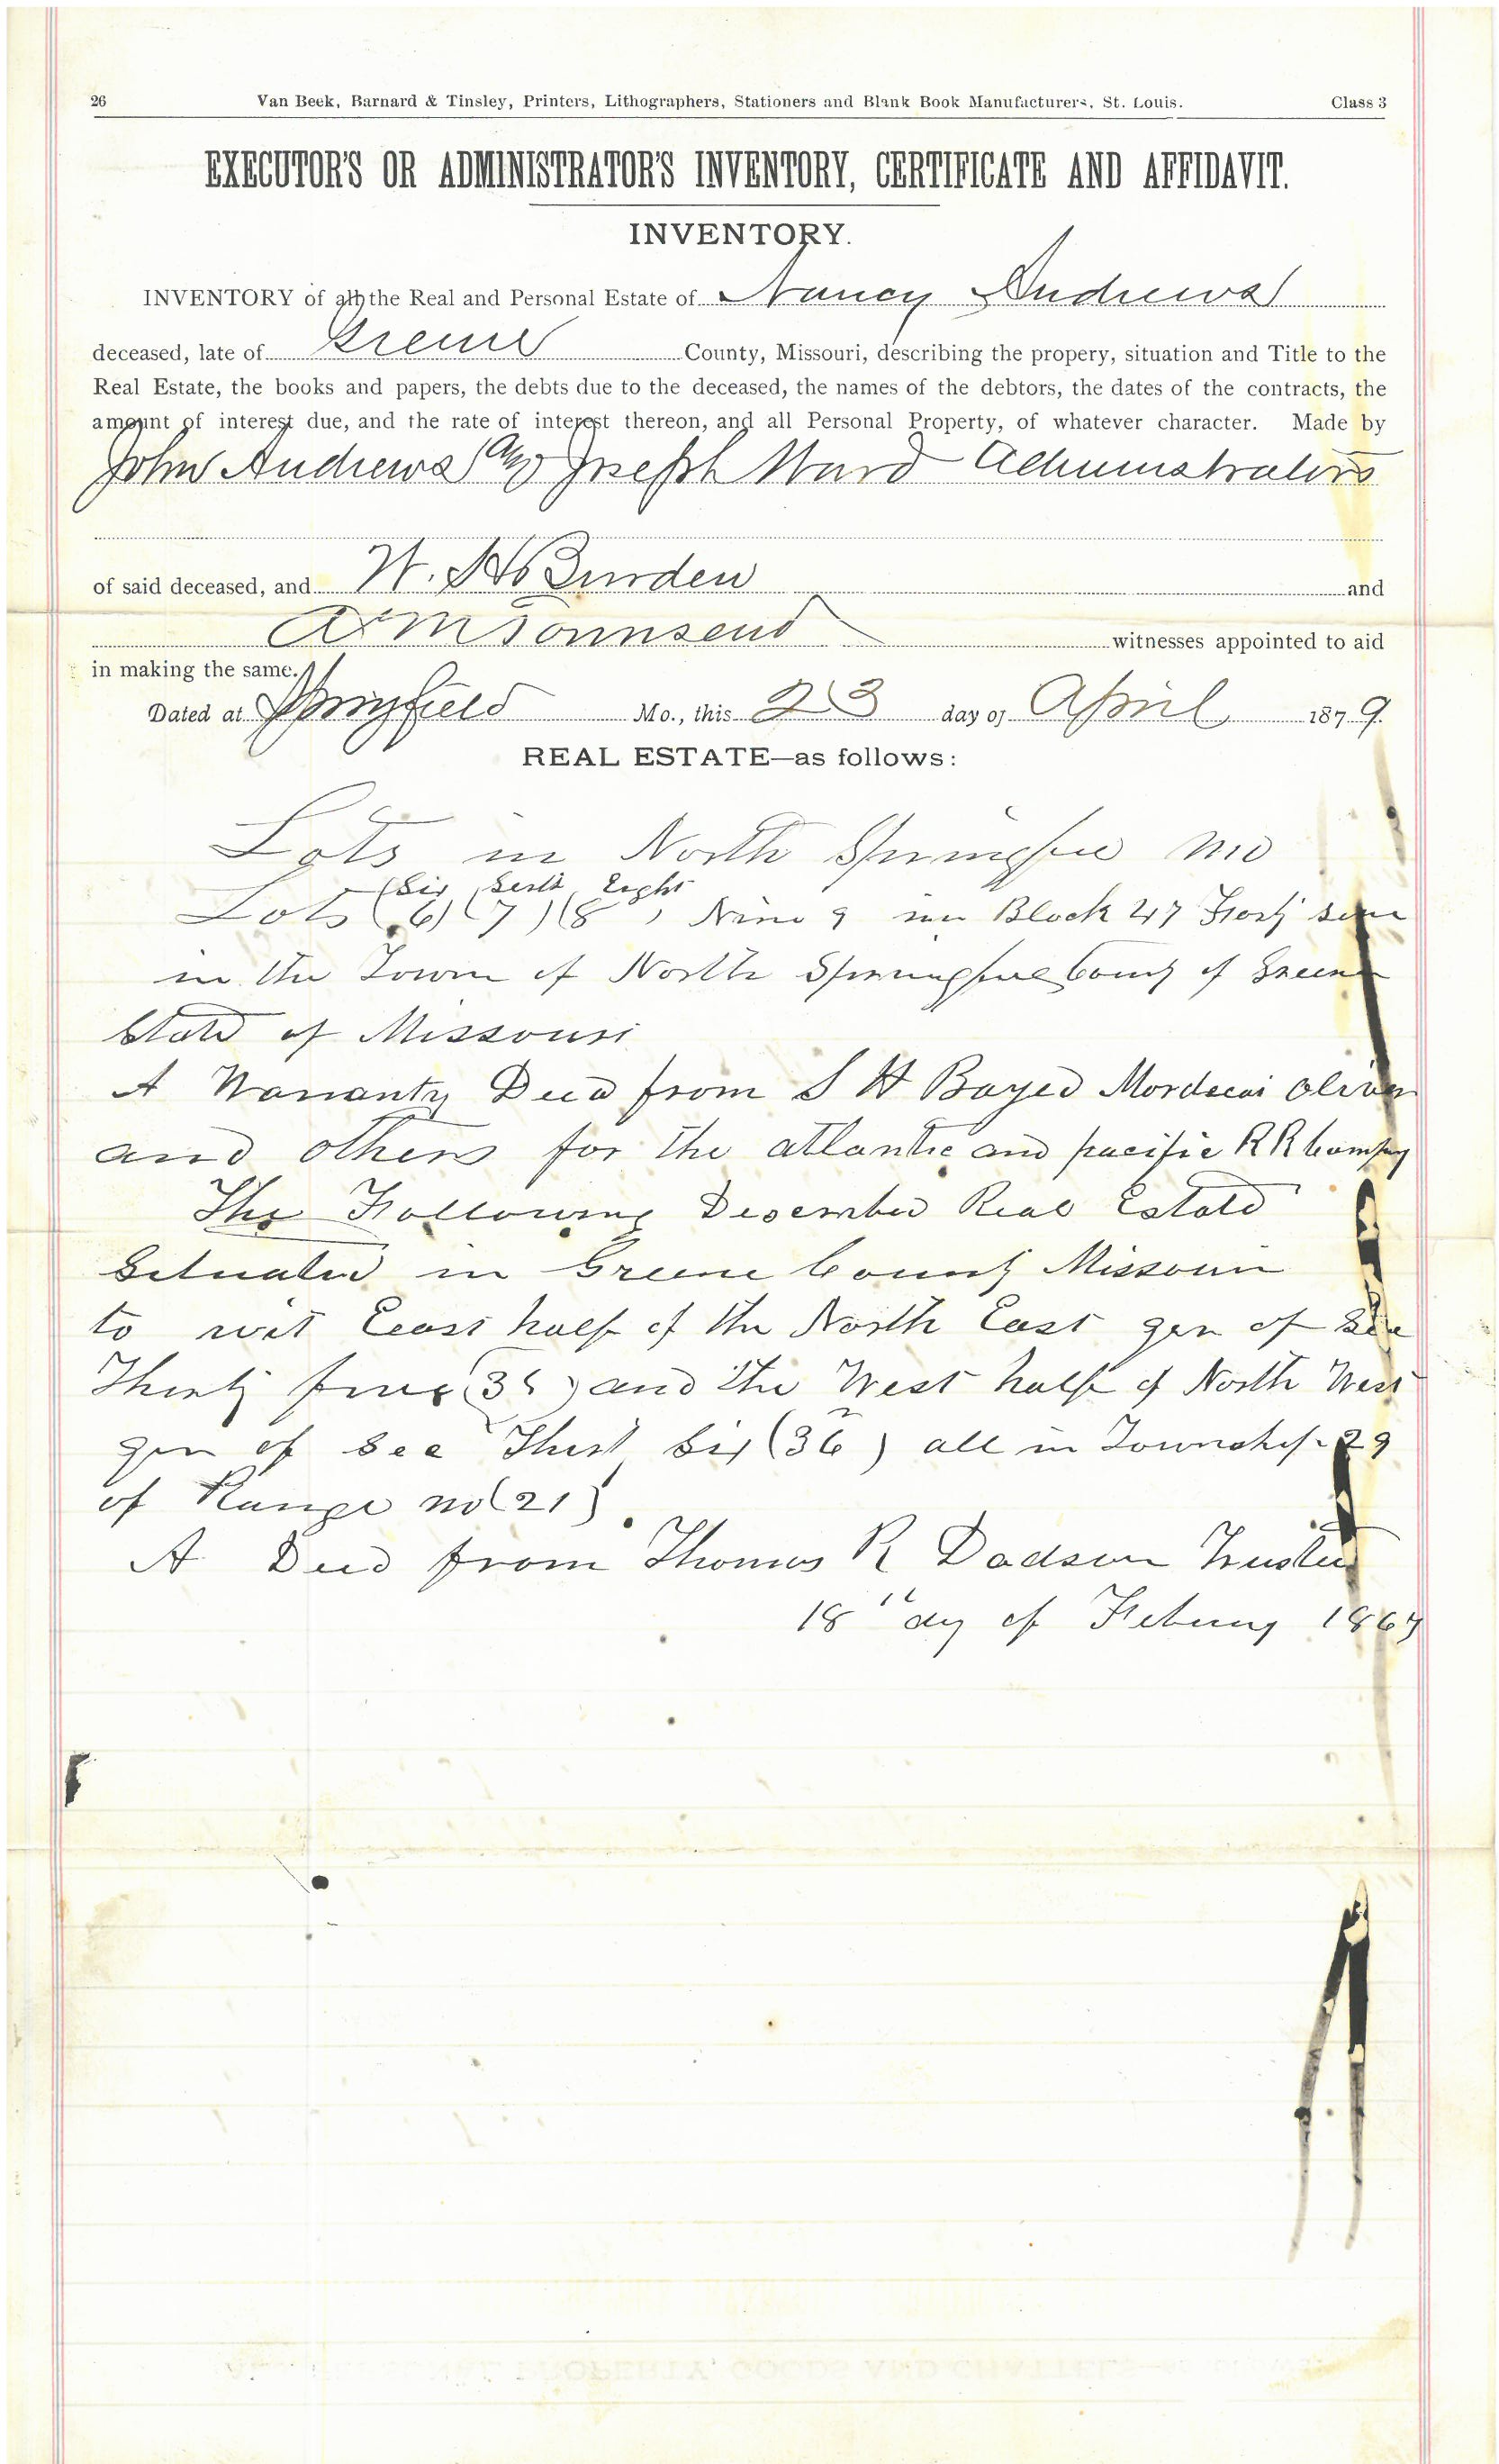 26 Van Beek, Barnard & Tinsley, Printers, Lithographers, Stationers and Blank Book Manufacturers, St. Louis. Class 3
EXECUTOR'S OR ADMINISTRATOR'S INVENTORY, CERTIFICATE AND AFFIDAVIT.
INVENTORY.
INVENTORY of all the Real and Personal Estate of Nancy Andrews
deceased, late of Greene County, Missouri, describing the propery, situation and Title to the
Real Estate, the books and papers, the debts due to the deceased, the names of the debtors, the dates of the contracts, the
amount of interest due, and the rate of interest thereon, and all Personal Property, of whatever character. Made by
John Andrews and Joseph Ward Administrators
of said deceased, and W. H. Burden and
A M Townsend witnesses appointed to aid
in making the same.
Dated at Springfield Mo., this 23 day of April 1879.
REAL ESTATE—as follows:
Lots in North Mo
Six Eight
Lots (6) (7) (8 ) Nine 9 in Block 47
in the Town of North County of Greene
State of Missouri
A Warranty Deed from S H Boyed Mordecai Oliver
and others for the atlantic and pacific R R Company
The Following Real Estate
Situated in Greene County Missouri
to wit East half of the North East qr of Sec
Thirty five (35) and the West half of North West
qr of Sec Six (36) all in Township 29
of Range no (21)
A Deed from Thomas R Dodson Trustee
18th day of 1867